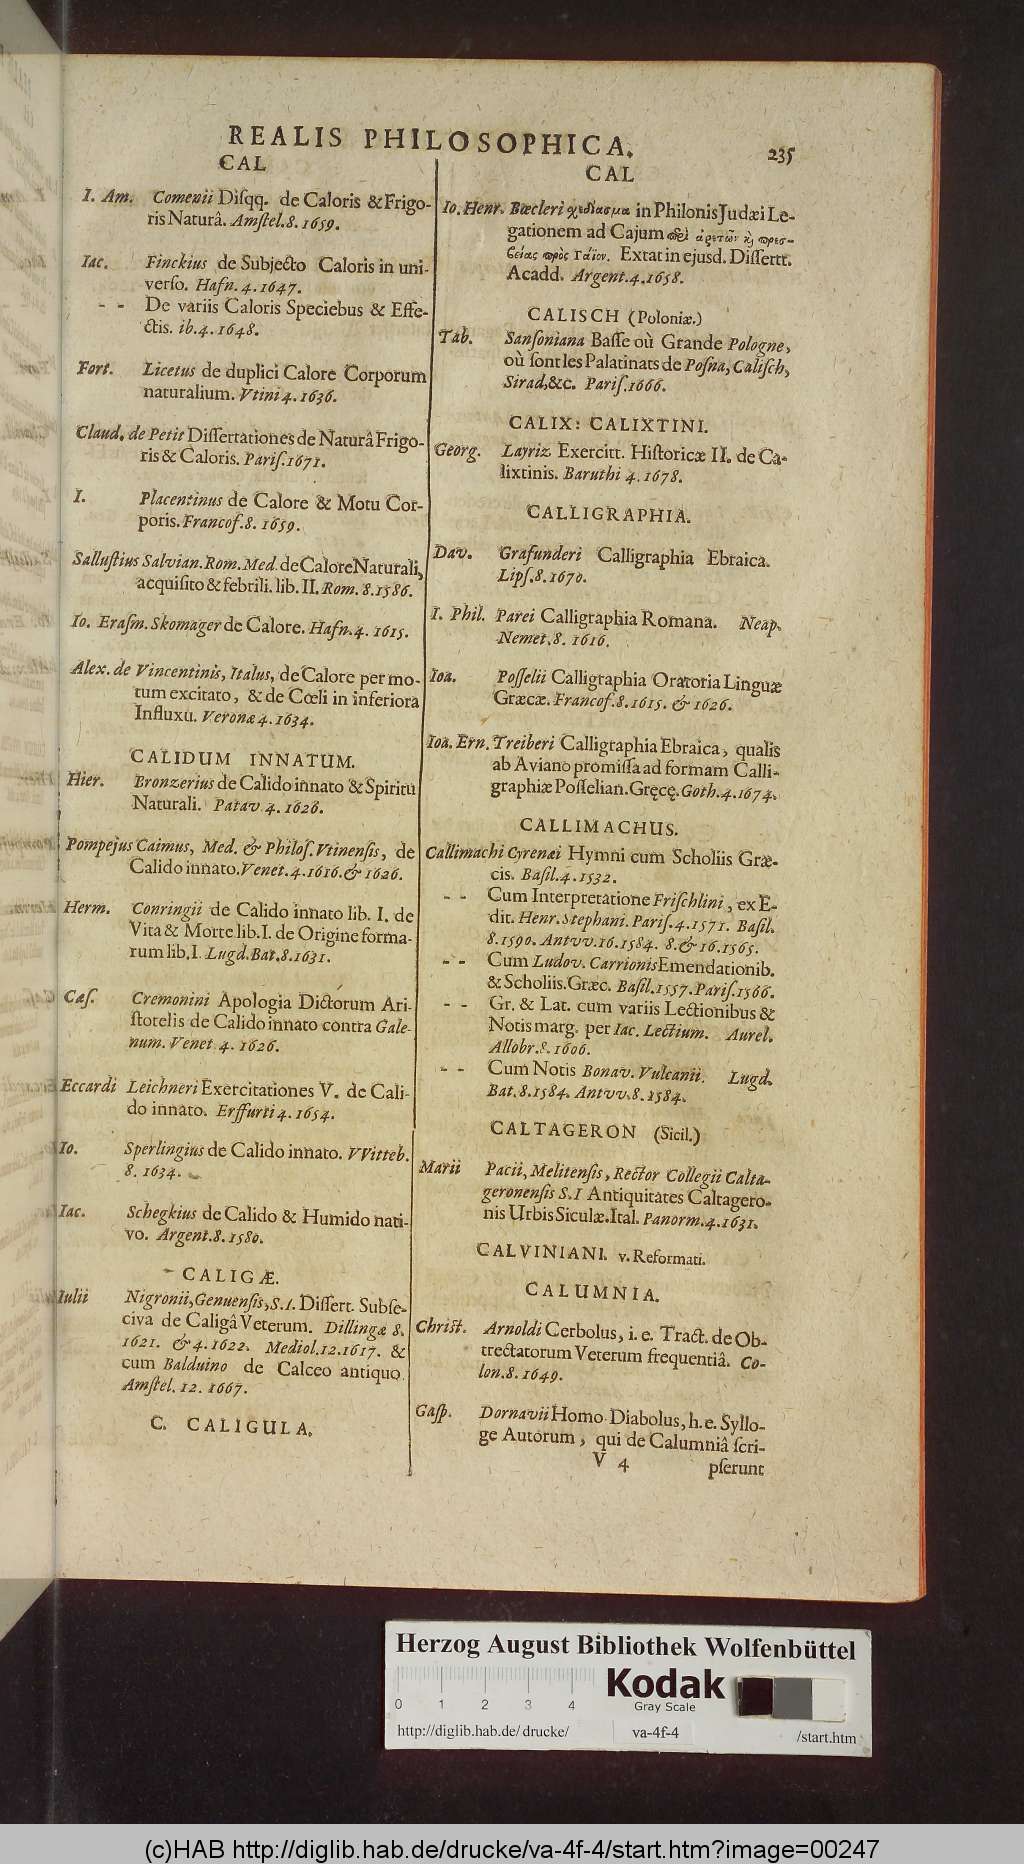 REALIS PHILOSOPHICA. 235
CAL
I. Am. Comenii Diſqq. de Caloris & Frigo-
ris Naturâ. Amſtel.8. 1659.
Iac. Finckius de Subjecto Caloris in uni-
verſo. Hafn. 4. 1647.
- - De variis Caloris Speciebus & Effe-
ctis. ib.4. 1648.
Fort. Licetus de duplici Calore Corporum
naturalium. Vtini 4. 1636.
Claud. de Petit Diſſertationes de Naturâ Frigo-
ris & Caloris. Pariſ.1671.
I. Placentinus de Calore & Motu Cor-
poris. Francof.8. 1659.
Salluſtius Salvian. Rom. Med. de Calore Naturali,
acquiſito & febrili. lib. II. Rom. 8.1586.
Io. Eraſm. Skomager de Calore. Hafn.4. 1615.
Alex. de Vincentinis, Italus, de Calore per mo-
tum excitato, & de Cœli in inferiora
Influxu. Veronæ 4. 1634.
CALIDUM INNATUM.
Hier. Bronzerius de Calido innato & Spiritu
Naturali. Patav. 4. 1626.
Pompejus Caimus, Med. & Philoſ. Vtinenſis, de
Calido innato. Venet. 4.1616. & 1626.
Herm. Conringii de Calido innato lib. I. de
Vita & Morte lib.I. de Origine forma-
rum lib.I. Lugd. Bat. 8.1631.
Cæſ. Cremonini Apologia Dictorum Ari-
ſtotelis de Calido innato contra Gale-
num. Venet. 4. 1626.
Eccardi Leichneri Exercitationes V. de Cali-
do innato. Erffurti 4. 1654.
Io. Sperlingius de Calido innato. VVitteb.
8. 1634.
Iac. Schegkius de Calido & Humido nati-
vo. Argent.8. 1580.
CALIGÆ.
Iulii Nigronii, Genuenſis, S.I. Diſſert. Subſe-
civa de Caligâ Veterum. Dillingæ 8.
1621. & 4. 1622. Mediol.12.1617. &
cum Balduino de Calceo antiquo.
Amſtel. 12. 1667.
C. CALIGULA.
CAL
Io. Henr. Bœcleri σχεδίασμα in Philonis Judæi Le-
gationem ad Cajum περὶ ἀρετῶν καὶ πρεσ-
βείας πρὸς Γάϊον. Extat in ejusd. Diſſertt.
Acadd. Argent.4.1658.
CALISCH (Poloniæ.)
Tab. Sanſoniana Baſſe où Grande Pologne,
où ſont les Palatinats de Poſna, Caliſch,
Sirad, &c. Pariſ.1666.
CALIX: CALIXTINI.
Georg. Layriz Exercitt. Hiſtoricæ II. de Ca-
lixtinis. Baruthi 4. 1678.
CALLIGRAPHIA.
Dav. Grafunderi Calligraphia Ebraica.
Lipſ.8. 1670.
I. Phil. Parei Calligraphia Romana. Neap.
Nemet.8. 1616.
Ioa. Poſſelii Calligraphia Oratoria Linguæ
Græcæ. Francof.8.1615. & 1626.
Ioa. Ern. Treiberi Calligraphia Ebraica, qualis
ab Aviano promiſſa ad formam Calli-
graphiæ Poſſelian. Gręcę. Goth.4.1674.
CALLIMACHUS.
Callimachi Cyrenæi Hymni cum Scholiis Græ-
cis. Baſil. 4. 1532.
- - Cum Interpretatione Friſchlini, ex E-
dit. Henr. Stephani. Pariſ.4.1571. Baſil.
8.1590. Antvv.16.1584. 8. & 16.1565.
- - Cum Ludov. Carrionis Emendationib.
& Scholiis. Græc. Baſil.1557. Pariſ.1566.
- - Gr. & Lat. cum variis Lectionibus &
Notis marg. per Iac. Lectium. Aurel.
Allobr.8. 1606.
- - Cum Notis Bonav. Vulcanii. Lugd.
Bat. 8.1584. Antvv.8.1584.
CALTAGERON (Sicil.)
Marii Pacii, Melitenſis, Rector Collegii Calta-
geronenſis S.I Antiquitates Caltagero-
nis Urbis Siculæ. Ital. Panorm.4.1631.
CALVINIANI. v. Reformati.
CALUMNIA.
Chriſt. Arnoldi Cerbolus, i. e. Tract. de Ob-
trectatorum Veterum frequentiâ. Co-
lon.8. 1649.
Gaſp. Dornavii Homo Diabolus, h.e. Syllo-
ge Autorum, qui de Calumniâ ſcri-
V 4 pſerunt
Herzog August Bibliothek Wolfenbüttel
0 1 2 3 4
Kodak
Gray Scale
http://diglib.hab.de/drucke/ va-4f-4 /start.htm
(c)HAB http://diglib.hab.de/drucke/va-4f-4/start.htm?image=00247